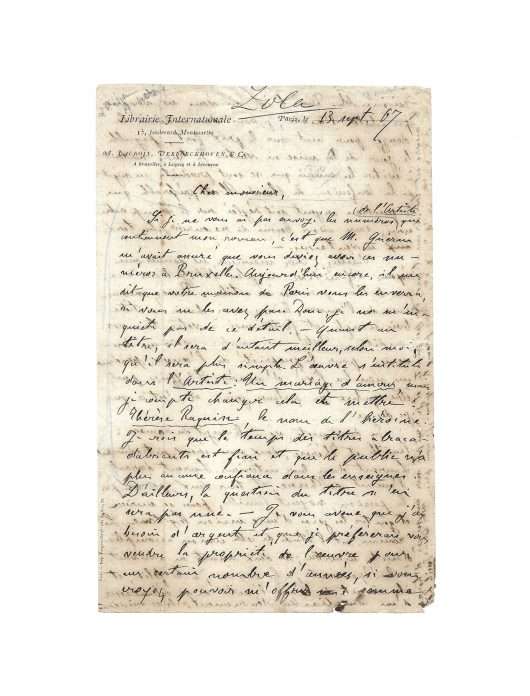 Zola
Librairie Internationale
15, boulevard Montmartre
Paris, le 13 sept. 67
A. Lacroix, Verboeckhoven & Cie
A Bruxelles, à Leipzig et à Livourne
Cher monsieur,
de l'Artiste
Si je ne vous ai pas envoyé les numéros qui
contiennent mon roman, c'est que M. Guérin
m'avait assuré que vous deviez avoir ces nu-
méros à Bruxelles. Aujourd'hui encore, il me
dit que votre maison de Paris vous les enverra,
si vous ne les avez pas. Donc je ne m'in-
quiète pas de ce détail. — Quant au
titre, il sera d'autant meilleur, selon moi,
qu'il sera plus simple. L'œuvre s'intitule
dans l'Artiste: Un mariage d'amour mais
je compte changer cela et mettre
Thérèse Raquin le nom de l'héroïne
Je crois que le temps des titres abraca-
dabrants est fini et que le public n'a
plus aucune confiance dans les enseignes
D'ailleurs, la question du titre n'en
sera pas une. — Je vous avoue que j'ai
besoin d'argent et que je préférerais vous
vendre la propriété de l'œuvre pour
un certain nombre d'années, si vous
croyez pouvoir m'offrir une somme